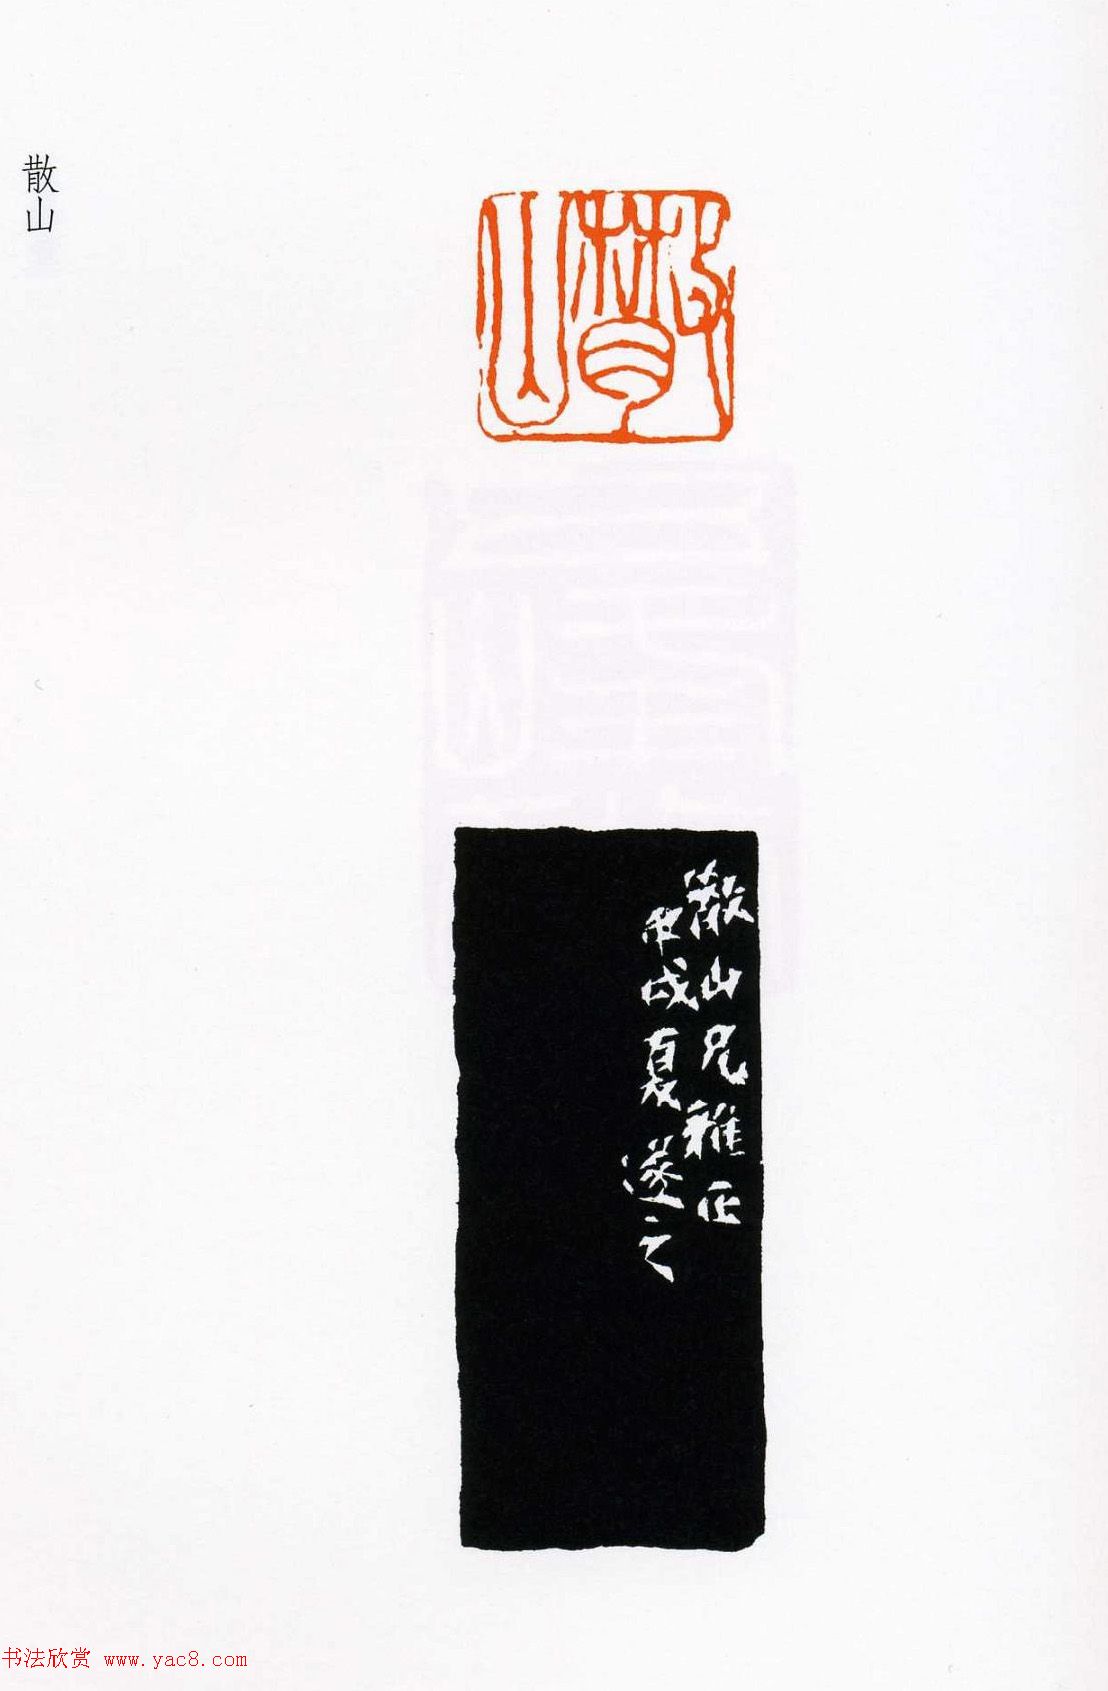 散山
散山
散山兄雅正
甲戌夏遂之
书法欣赏 www.yac8.com